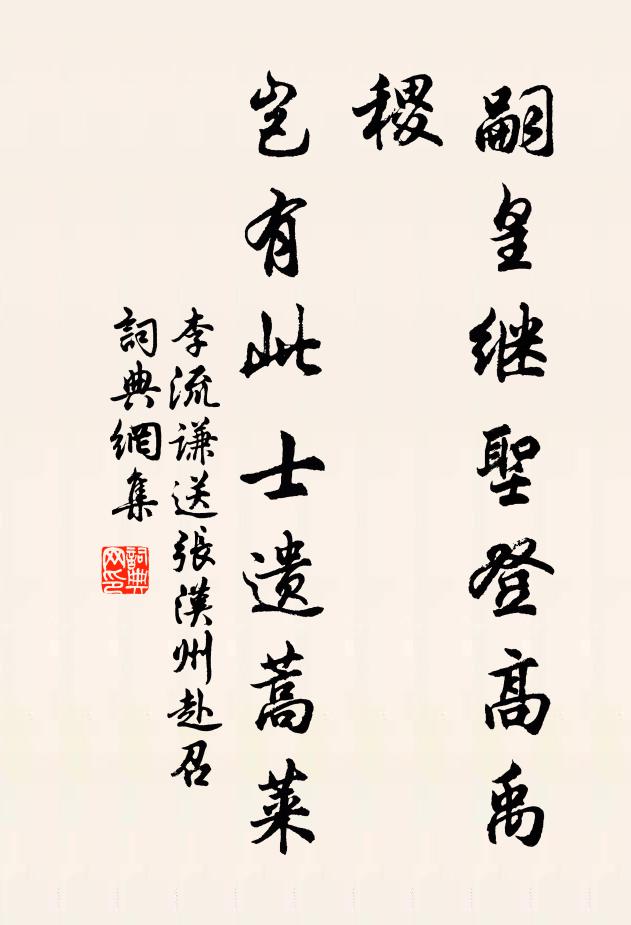 嗣皇继聖登高禹
稷
岂有此士遗蒿莱
李流謙送張漢州赴召
詞典網集
詞典
网印